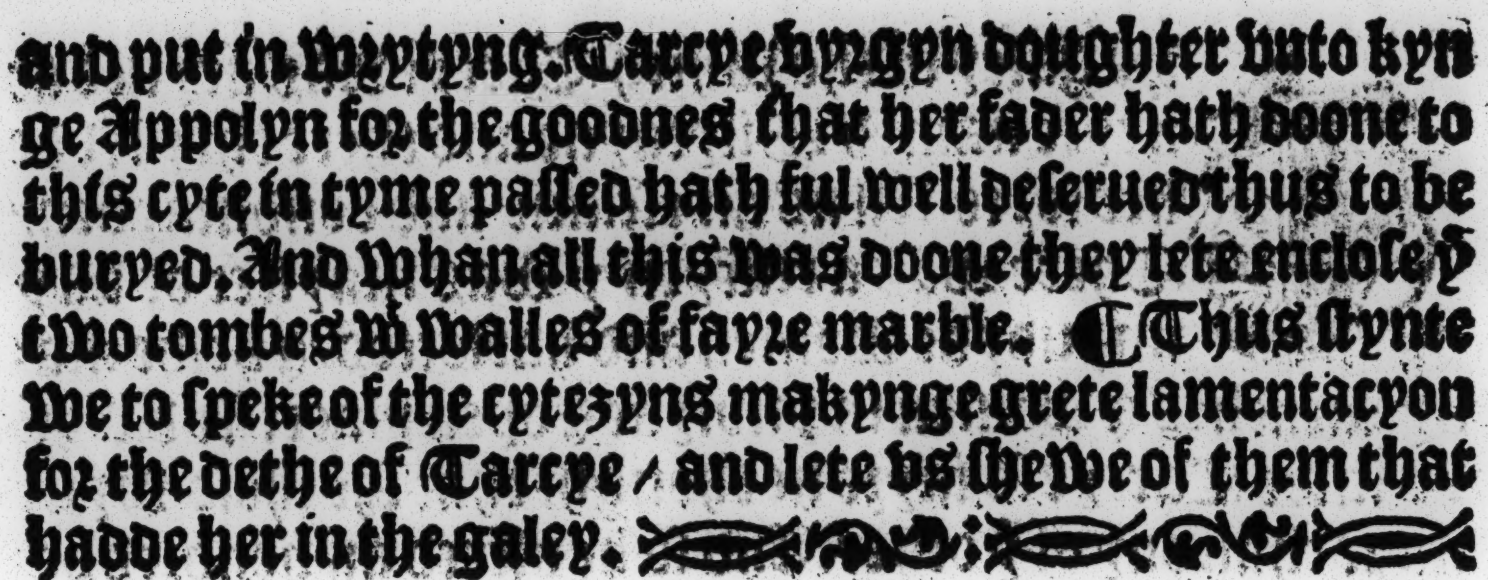 and put in wrytyng. Tarcye vyrgyn doughter vnto kyn
ge Appolyn for the goodnes that her fader hath doone to
this cyte in tyme paſſed hath ful well deſerued thus to be
buryed. And whan all this was doone they lete encloſe yͤ
two tombes wͭ walles of fayre marble. ¶ Thus ſtynte
we to ſpeke of the cytezyns makynge grete lamentacyon
for the dethe of Tarcye / and lete vs ſhewe of them that
hadde her in the galey.